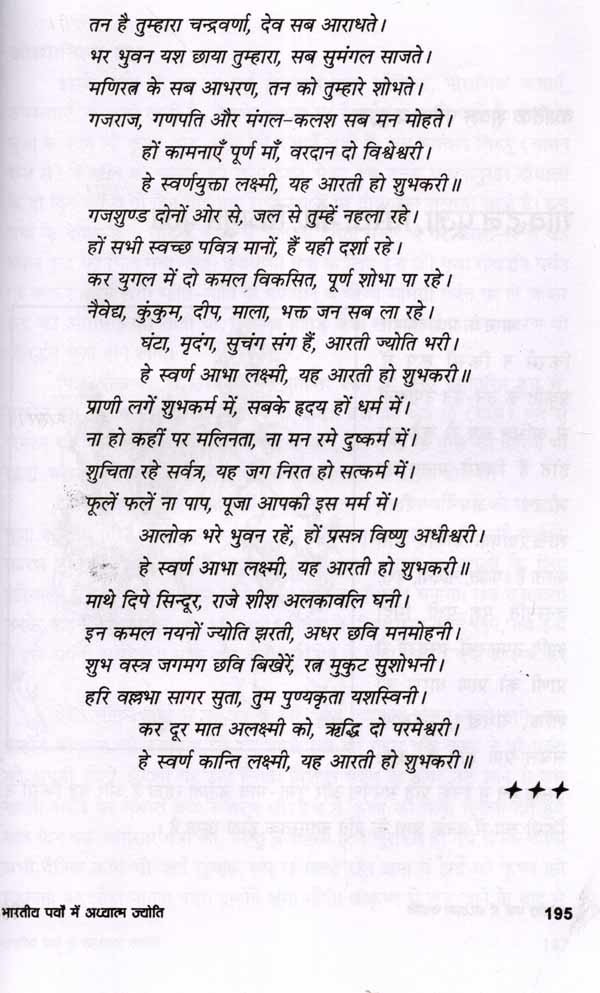 तन है तुम्हारा चन्द्रवर्णा, देव सब आराधते।
भर भुवन यश छाया तुम्हारा, सब सुमंगल साजते।
मणिरत्न के सब आभरण, तन को तुम्हारे शोभते।
गजराज, गणपति और मंगल-कलश सब मन मोहते।
हों कामनाएँ पूर्ण माँ, वरदान दो विश्वेश्वरी।
हे स्वर्णयुक्ता लक्ष्मी, यह आरती हो शुभकरी॥
गजशुण्ड दोनों ओर से, जल से तुम्हें नहला रहे।
हों सभी स्वच्छ पवित्र मानों, हैं यही दर्शा रहे।
कर युगल में दो कमल विकसित, पूर्ण शोभा पा रहे।
नैवेद्य, कुंकुम, दीप, माला, भक्त जन सब ला रहे।
घंटा, मृदंग, सुचंग संग हैं, आरती ज्योति भरी।
हे स्वर्ण आभा लक्ष्मी, यह आरती हो शुभकरी॥
प्राणी लगें शुभकर्म में, सबके हृदय हों धर्म में।
ना हो कहीं पर मलिनता, ना मन रमे दुष्कर्म में।
शुचिता रहे सर्वत्र, यह जग निरत हो सत्कर्म में।
फूलें फलें ना पाप, पूजा आपकी इस मर्म में।
आलोक भरे भुवन रहें, हों प्रसन्न विष्णु अधीश्वरी।
हे स्वर्ण आभा लक्ष्मी, यह आरती हो शुभकरी॥
माथे दिपे सिन्दूर, राजे शीश अलकावलि घनी।
इन कमल नयनों ज्योति झरती, अधर छवि मनमोहनी।
शुभ वस्त्र जगमग छवि बिखेरें, रत्न मुकुट सुशोभनी।
हरि वल्लभा सागर सुता, तुम पुण्यकृता यशस्विनी।
कर दूर मात अलक्ष्मी को, ऋद्धि दो परमेश्वरी।
हे स्वर्ण कान्ति लक्ष्मी, यह आरती हो शुभकरी॥
भारतीय पर्वों में अध्यात्म ज्योति
195